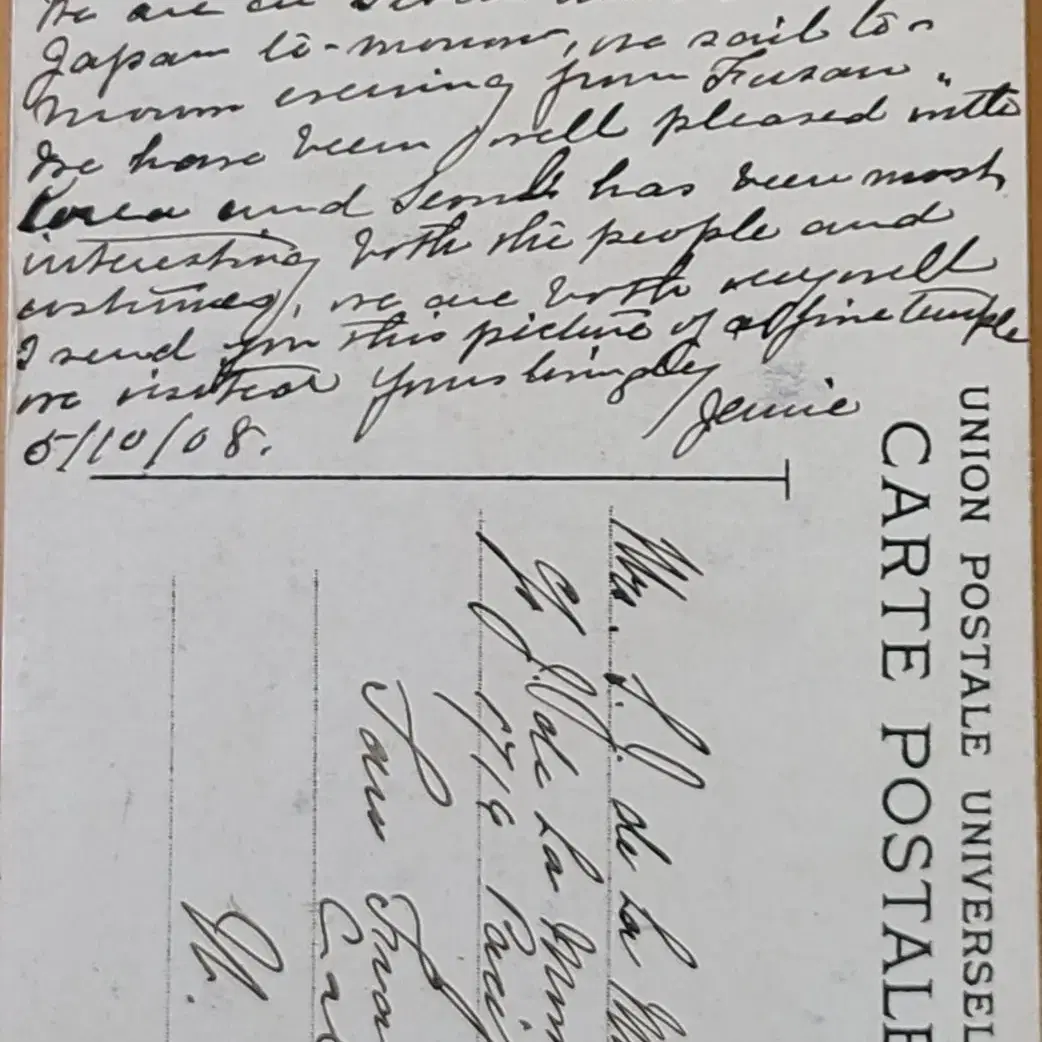 We are all
Japan to-morrow, we sail to-
morrow evening from Fusan.
We have been well pleased with
Corea and Seoul has been most
interesting both the people and
costumes, we are both very well
I send you this picture of a fine temple
we visited Yours lovingly
Jennie
5/10/08.
UNION POSTALE UNIVERSEL
CARTE POSTALE
Mrs. de La
de La
Paci
San Fran
Cal
U.